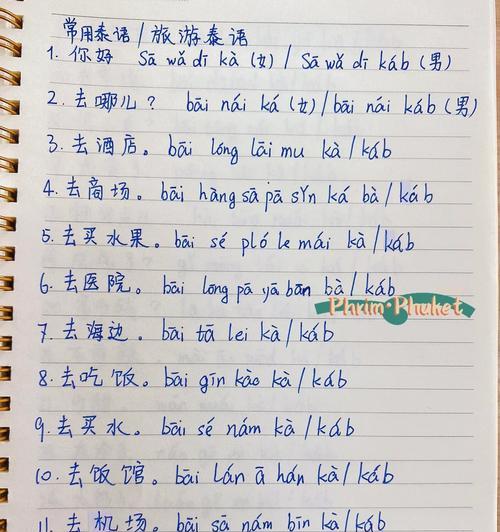 常用泰语/旅游泰语
1. 你好 Sā wǎ dī kà (女) / Sā wǎ dī káb (男)
2. 去哪儿? bāi nái ká (女)/bāi nái káb (男)
3. 去酒店。bāi lóng lāi mu kà/káb
4. 去商场。bāi hàng sā pā sīn ká bà/káb
5. 去买水果。bāi sé pló le mái kà/káb
6. 去医院。bāi lōng pā yā bān bà/káb
Phrim·Phuket
7. 去海边。bāi tā lei kà/káb
8. 去吃饭。bāi gīn kào kà/káb
9. 去买水。bāi sé nám kà/káb
10. 去饭馆。bāi lán ā hán kà/káb
11. 去机场。bāi sā nám bīn kà/káb